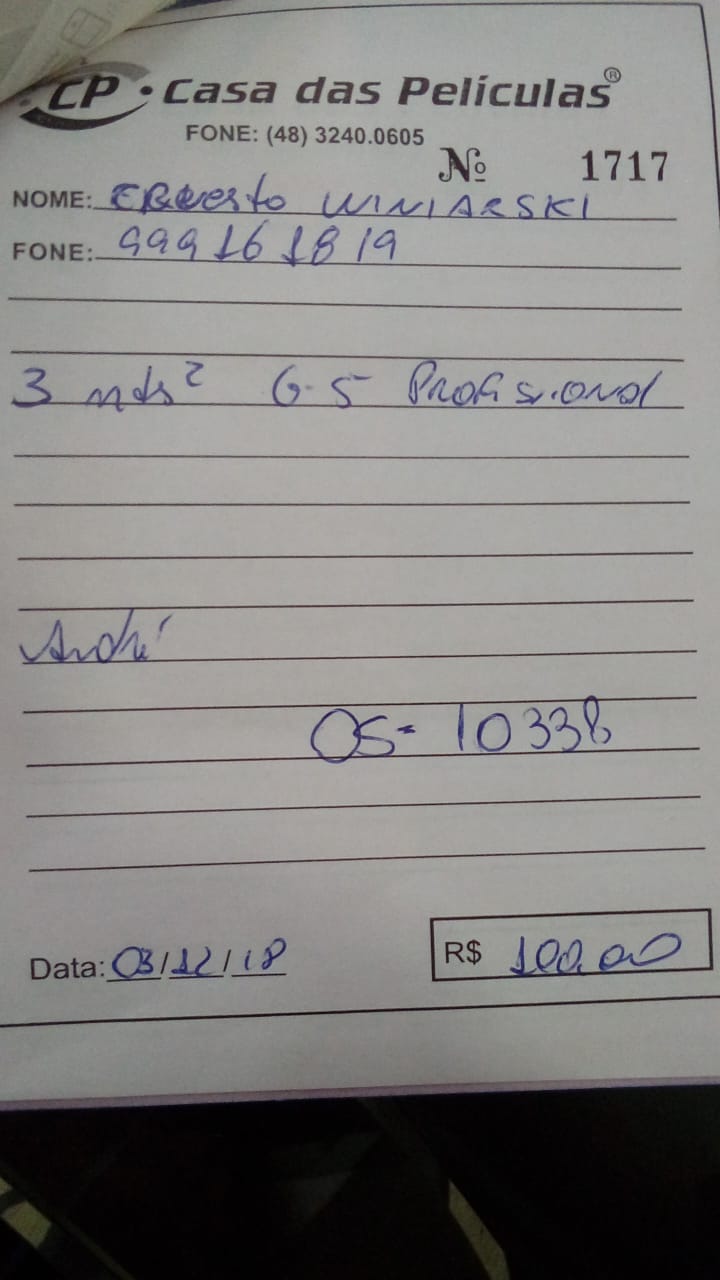 CP • Casa das Películas®
FONE: (48) 3240.0605
Nº 1717
NOME: Ernesto WINIARSKI
FONE: 999161819
3 mts² G-5 Profissional
André
OS- 10338
Data: 03/12/18
R$ 100,00